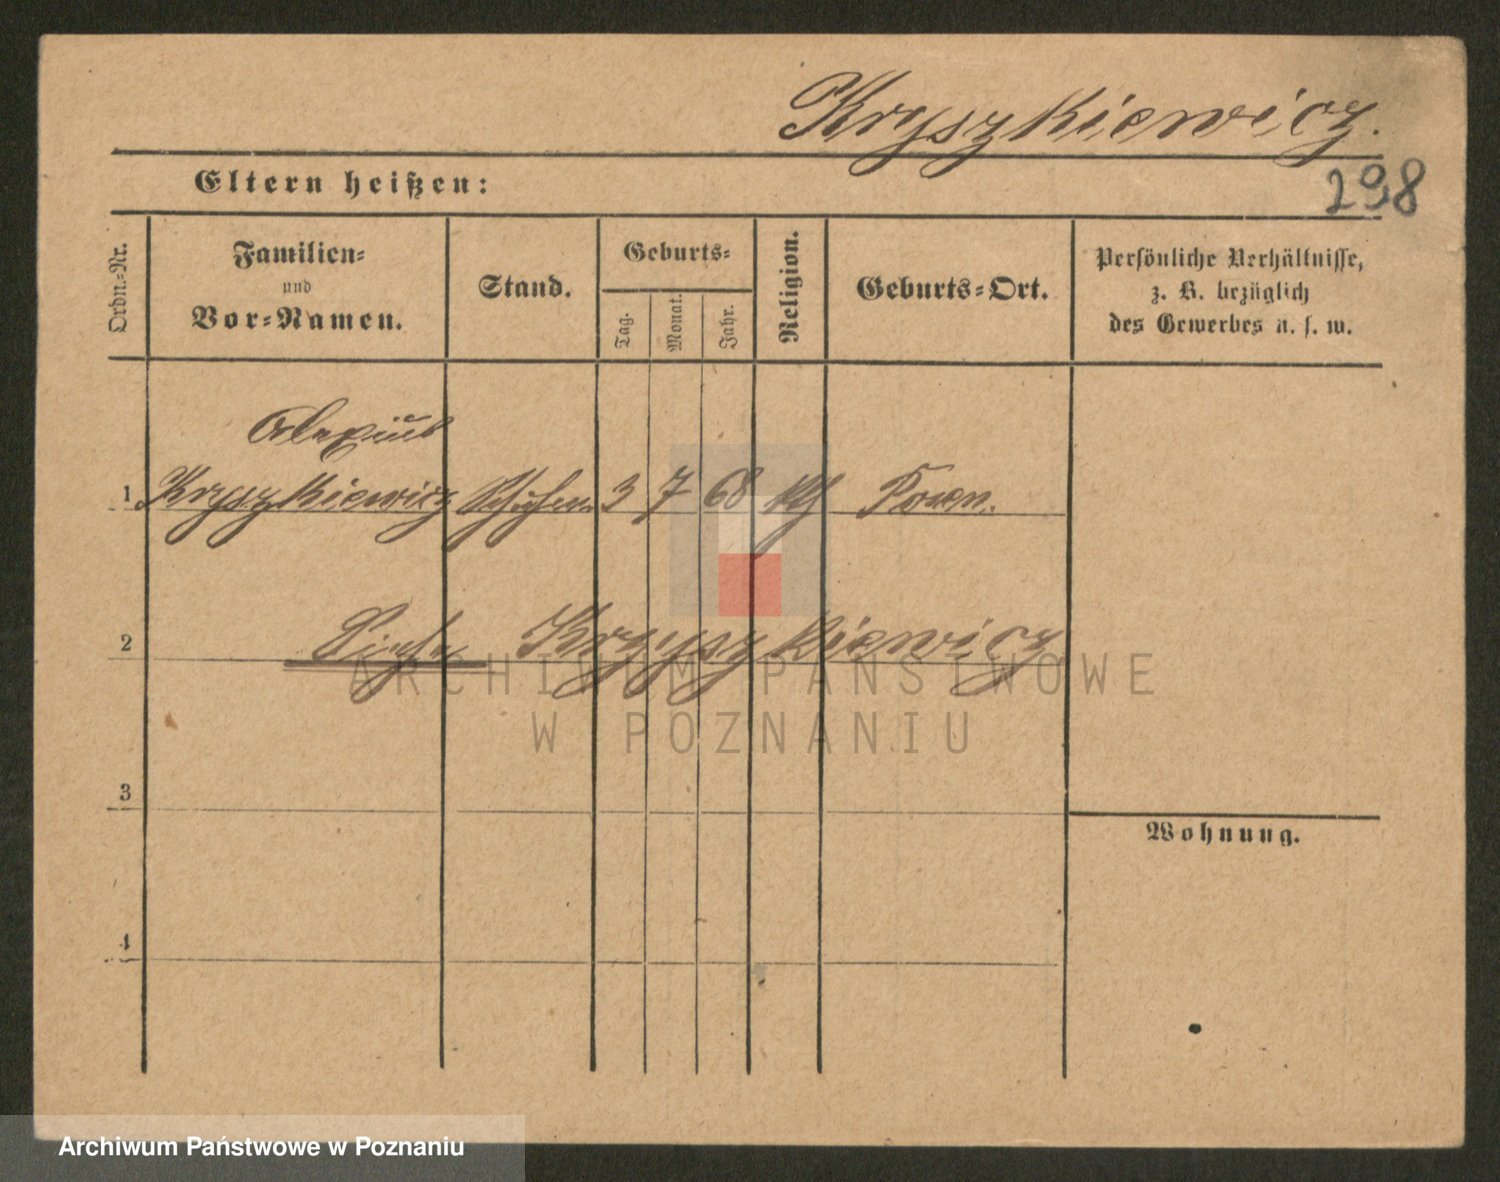 Kryszkiewicz.
Eltern heißen:
298
Ordn.-Nr.
Familien-
und
Vor-Namen.
Stand.
Geburts-
Tag.
Monat.
Jahr.
Religion.
Geburts-Ort.
Persönliche Verhältnisse,
z. B. bezüglich
des Gewerbes u. s. w.
Alexius
1 Kryszkiewicz 3 7 68 kth Posen.
2 Siehe Kryzyszkiewicz
3
Wohnung.
4
ARCHIWUM PAŃSTWOWE
W POZNANIU
Archiwum Państwowe w Poznaniu